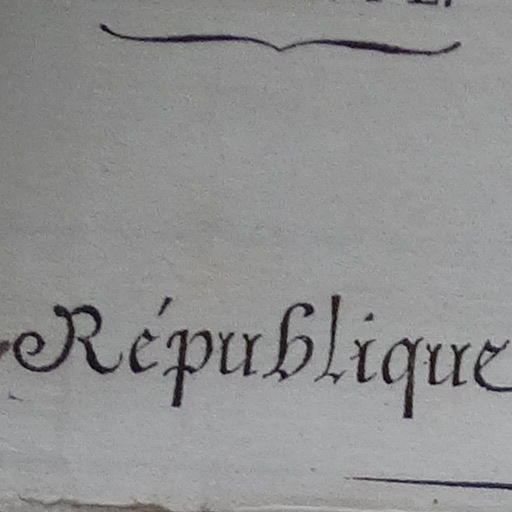 République